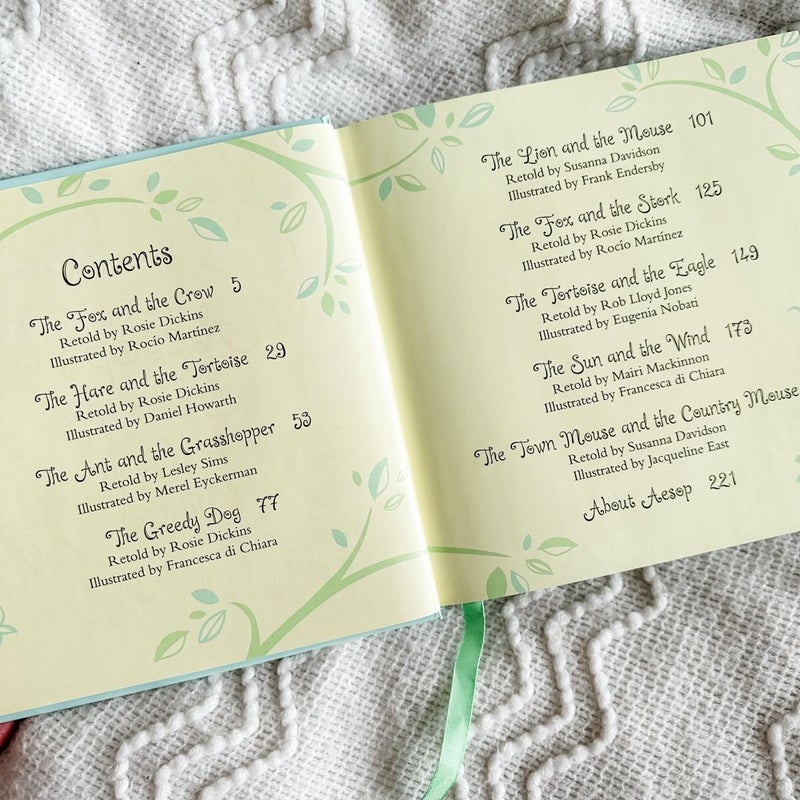 Contents
The Fox and the Crow 5
Retold by Rosie Dickins
Illustrated by Rocío Martínez
The Hare and the Tortoise 29
Retold by Rosie Dickins
Illustrated by Daniel Howarth
The Ant and the Grasshopper 53
Retold by Lesley Sims
Illustrated by Merel Eyckerman
The Greedy Dog 77
Retold by Rosie Dickins
Illustrated by Francesca di Chiara
The Lion and the Mouse 101
Retold by Susanna Davidson
Illustrated by Frank Endersby
The Fox and the Stork 125
Retold by Rosie Dickins
Illustrated by Rocío Martínez
The Tortoise and the Eagle 149
Retold by Rob Lloyd Jones
Illustrated by Eugenia Nobati
The Sun and the Wind 173
Retold by Mairi Mackinnon
Illustrated by Francesca di Chiara
The Town Mouse and the Country Mouse
Retold by Susanna Davidson
Illustrated by Jacqueline East
About Aesop 221